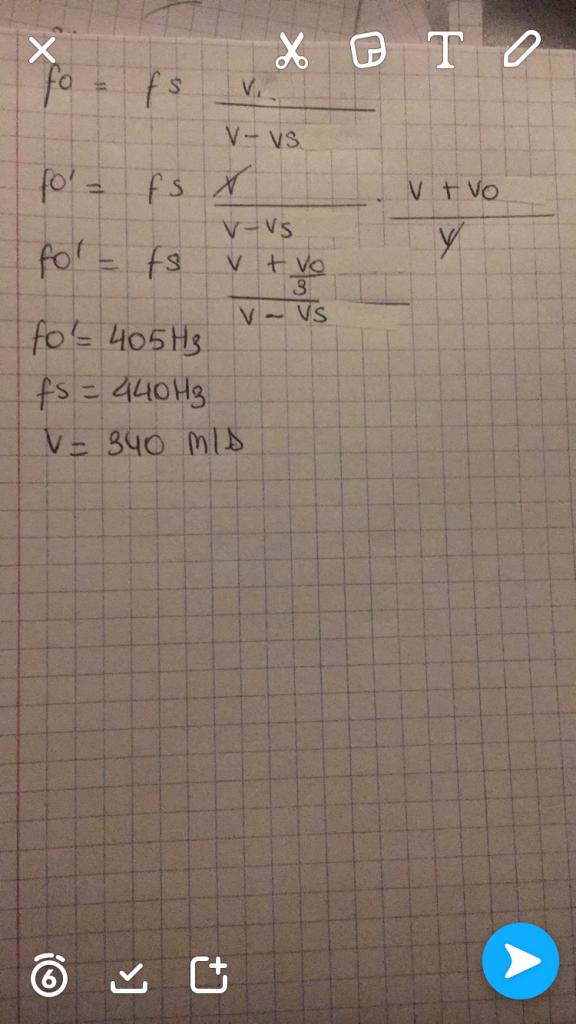 T
fo = fs v
v - vs
fo' = fs v . v + vo
v - vs v
fo' = fs v + vo
3
v - vs
fo' = 405Hz
fs = 440Hz
V = 340 m/s
6